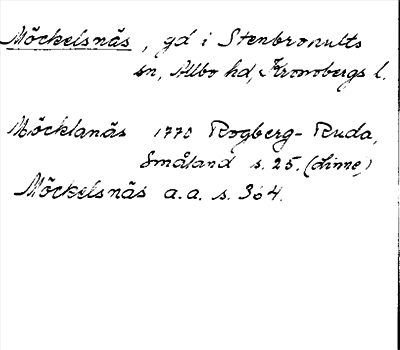 Möckelsnäs, gd i Stenbrohults
sn, Allbo hd, Kronobergs l.
Möcklanäs 1770 Rogberg-Ruda,
Småland s. 25. (Linne)
Möckelsnäs a.a. s. 364.